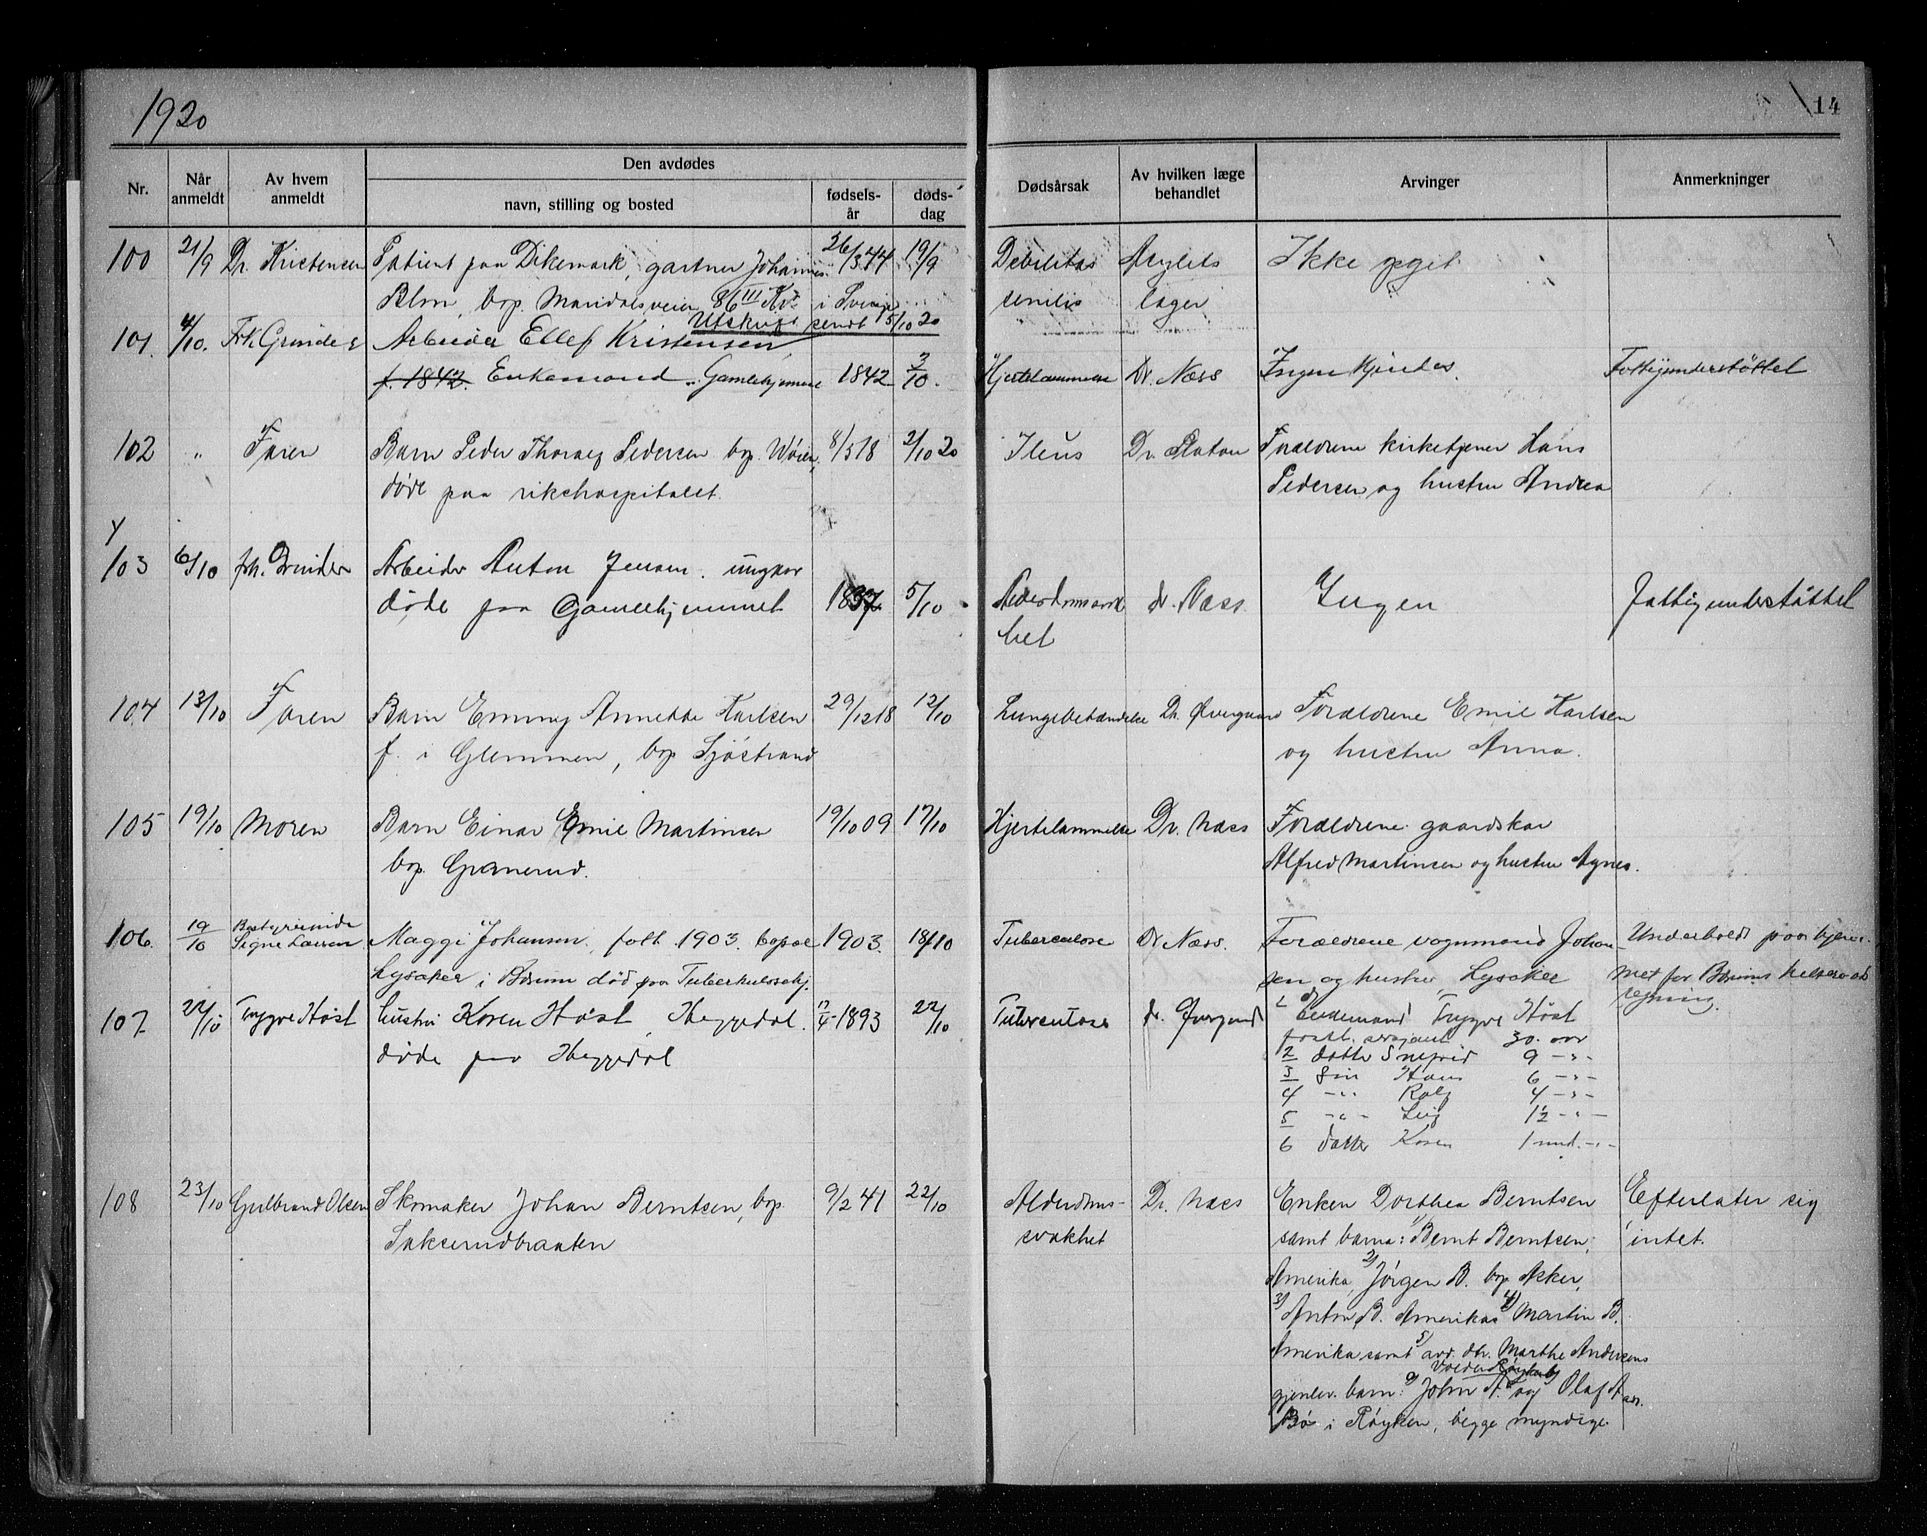 1920
14
Nr.
Når anmeldt
Av hvem anmeldt
Den avdødes
navn, stilling og bosted
fødsels-år
døds-dag
Dødsårsak
Av hvilken læge behandlet
Arvinger
Anmerkninger
100 21/9 Dr. Kristensen Patient paa Dikemark, gartner Johannes 26/3 44 19/9 Debilitas Asylets Ikke opgit
Blm, bop. Maridalsveien 86 III Kr. i senilis læger
Utskrift sendt 15/10 20
101. 4/10. Frk. Grinder Arbeider Ellef Kristensen,
f. 1842. Enkemand Gamlehjemmet 1842 2/10. Hjertelammelse Dr. Næss Ingen kjendes. Fattigunderstøttet
102 " Faren Barn Peder Thoralf Pedersen bop. Wøien, 8/5 18 2/10 20 Ileus Dr. Forældrene kirketjener Hans
døde paa rikshospitalet. Pedersen og hustru Andrea
103 6/10 frk. Grinder Arbeider Anton Jensen. ungkar
døde paa Gamlehjemmet 1837 5/10. Alderdomssvak- dr. Næss. Ingen Fattigunderstøttet
het
104 13/10 Faren Barn Emmy Annette Karlsen 29/12 18 12/10 Lungebetændelse Dr. Øvergaard Forældrene Emil Karlsen
f. i Glemmen, bop Sjøstrand og hustru Anna.
105 19/10 Moren Barn Einar Emil Martinsen 19/10 09 17/10 Hjertelammelse Dr. Næss Forældrene gaardskar
bop. Granerud. Alfred Martinsen og hustru Agnes.
106. 19/10 Bestyrerinde Signe Larsen Maggi Johansen, født 1903. bopæl 1903. 18/10 Tuberculose Dr Næss. Forældrene vognmand Johan- Underholdt paa hjem-
Lysaker i Bærum død paa Tuberkulosehj. sen og hustru, Lysaker met for Bærums helseraads
regning.
107. 22/10 Trygve Høst hustru Karen Høst, Heggedal. 17/4-1893 22/10 Tuberculose dr. Øvergaard 1 Enkemand Trygve Høst
døde paa Heggedal 30. aar
2 datter Snefrid 9 -"-
3 Søn Hans 6 -"-
4 -"- Rolf 4 -"-
5 -"- Leif 1½ -"-
6 datter Karen 1 mnd. -"-
108 23/10 Gulbrand Olsen Skomaker Johan Berntsen, bop. 9/2 41 22/10 Alderdoms- Dr. Næss Enken Dorthea Berntsen Efterlater sig
Sakserudbraaten svakhet samt barna: 1) Bernt Berntsen, intet.
Amerika, 2) Jørgen B. bop. Asker,
3) Anton B. Amerika 4) Martin B.
Amerika samt 5) avd. dtr. Marthe Andersens
gjenlev. barn: a) John A. og Olaf A
Bø i Røyken, begge myndige.